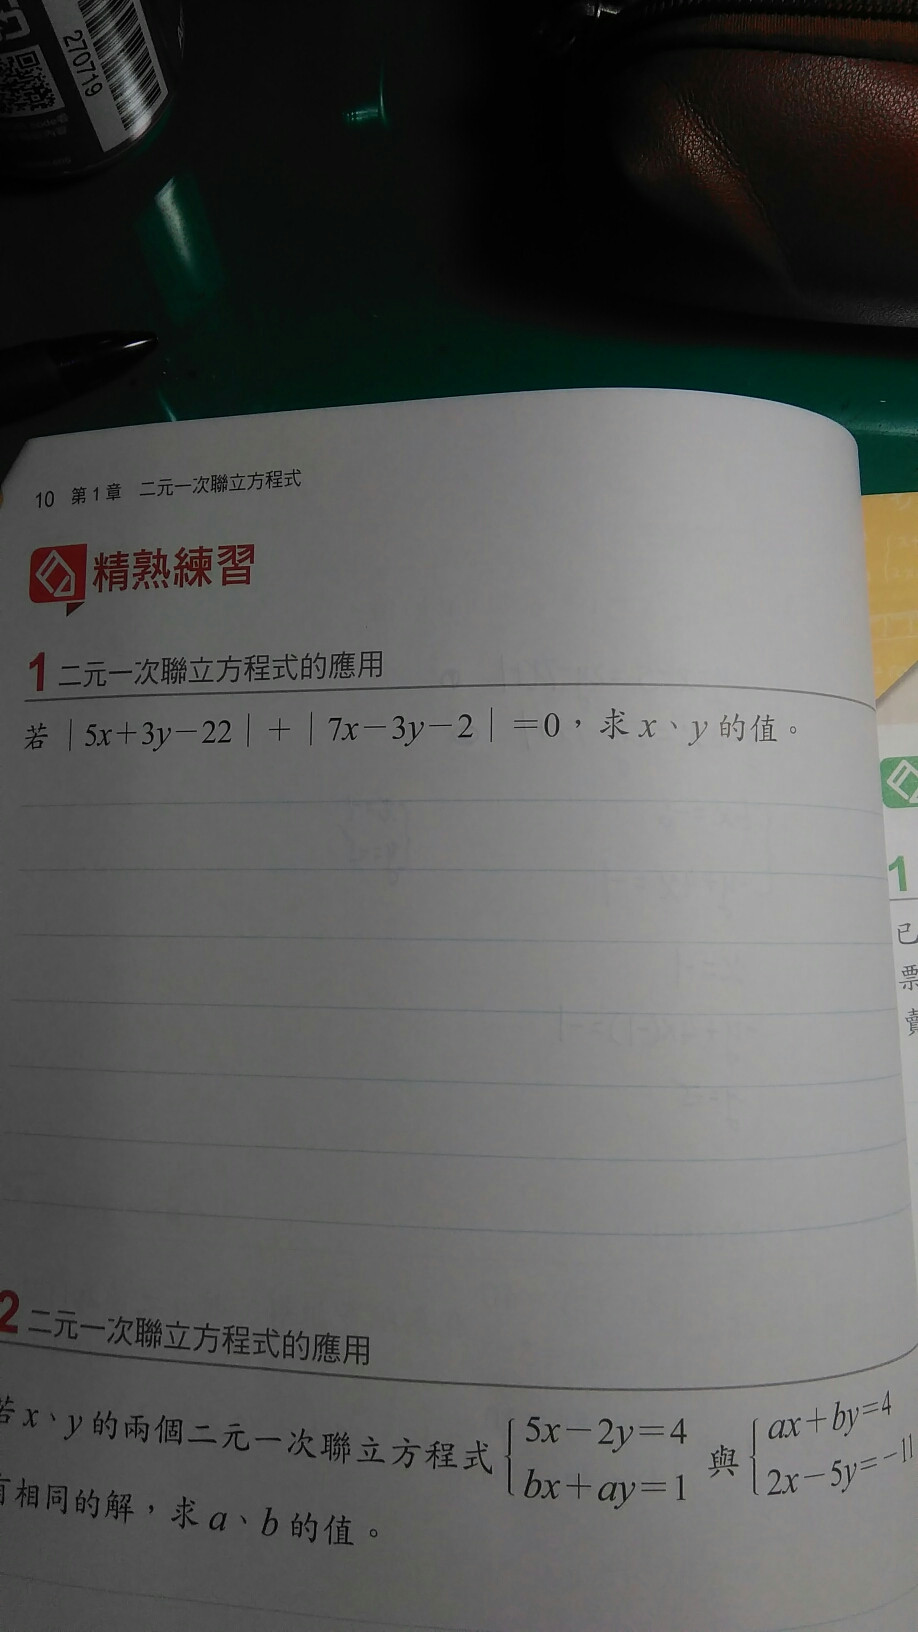 270719
10 第1章 二元一次聯立方程式
精熟練習
1 二元一次聯立方程式的應用
若 | 5x+3y-22 | + | 7x-3y-2 | =0，求 x、y 的值。
1
已
票
賣
2 二元一次聯立方程式的應用
若 x、y 的兩個二元一次聯立方程式 { 5x-2y=4 bx+ay=1 與 { ax+by=4 2x-5y=-11
有相同的解，求 a、b 的值。